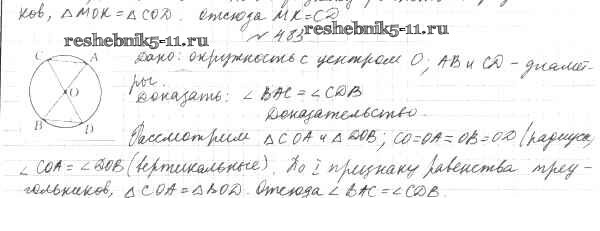 ков, △MOK = △COD. отсюда MK = CD
reshebnik5-11.ru
№ 483
reshebnik5-11.ru
C A
Дано: окружность с центром O; AB и CD - диамет-
ры.
O
Доказать: ∠BAC = ∠CDB
B D
Доказательство.
Рассмотрим △COA и △DOB; CO=OA=OB=OD (радиусы)
∠COA = ∠DOB (вертикальные). По I признаку равенства треу-
гольников, △COA = △BOD. Отсюда ∠BAC = ∠CDB.